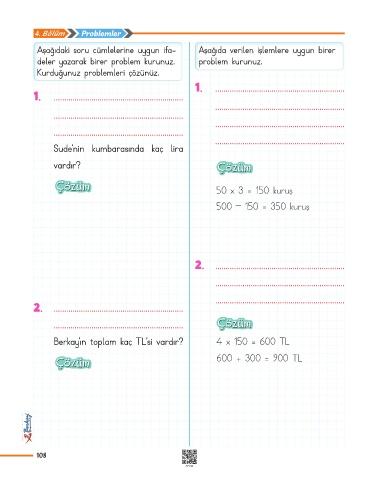 4. Bölüm Problemler
Aşağıdaki soru cümlelerine uygun ifa-
deler yazarak birer problem kurunuz.
Kurduğunuz problemleri çözünüz.
1.
Sude'nin kumbarasında kaç lira
vardır?
Çözüm
2.
Berkay'ın toplam kaç TL'si vardır?
Çözüm
Aşağıda verilen işlemlere uygun birer
problem kurunuz.
1.
Çözüm
50 x 3 = 150 kuruş
500 – 150 = 350 kuruş
2.
Çözüm
4 x 150 = 600 TL
600 + 300 = 900 TL
108